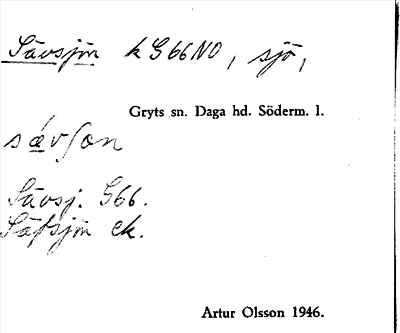 Sävsjön k G66NO, sjö,
Gryts sn. Daga hd. Söderm. l.
sävʃon
Sävsj. G66.
Säfsjön ek.
Artur Olsson 1946.